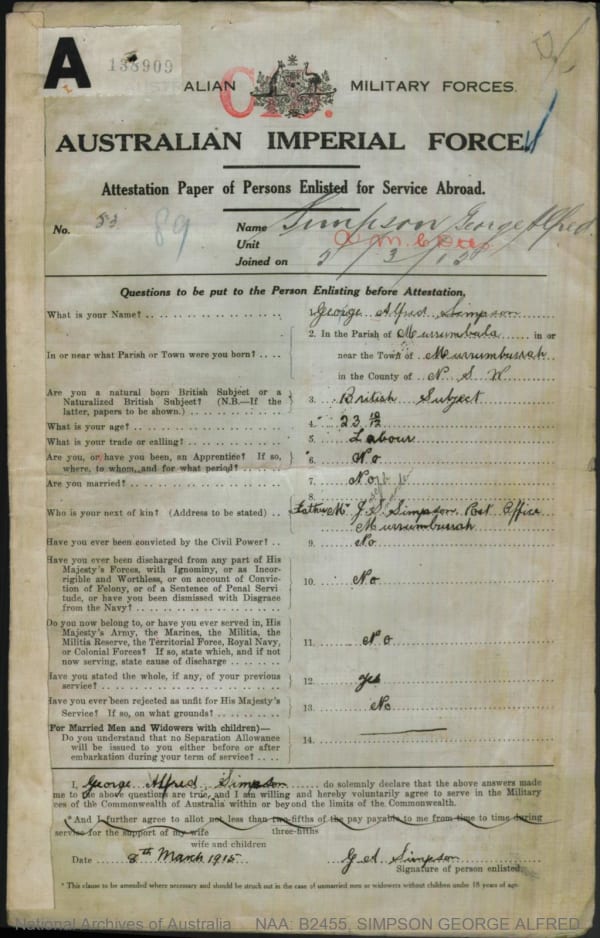 A
138909
ALIAN MILITARY FORCES.
AUSTRALIAN IMPERIAL FORCE
Attestation Paper of Persons Enlisted for Service Abroad.
No. 53 89 Name Simpson George Alfred
Unit A.M.C.
Joined on 5/3/15
Questions to be put to the Person Enlisting before Attestation.
What is your Name? 1. George Alfred Simpson
In or near what Parish or Town were you born? 2. In the Parish of Murrumbula in or
near the Town of Murrumburrah
in the County of N.S.W
Are you a natural born British Subject or a
Naturalized British Subject? (N.B.—If the
latter, papers to be shown.) 3. British Subject
What is your age? 4. 23
What is your trade or calling? 5. Labour
Are you, or have you been, an Apprentice? If so,
where, to whom, and for what period? 6. No
Are you married? 7. No
8.
Who is your next of kin? (Address to be stated) Father Mr J. S. Simpson Post Office
Murrumburrah
Have you ever been convicted by the Civil Power? 9. No
Have you ever been discharged from any part of His
Majesty's Forces, with Ignominy, or as Incor-
rigible and Worthless, or on account of Convic-
tion of Felony, or of a Sentence of Penal Servi-
tude, or have you been dismissed with Disgrace
from the Navy? 10. No
Do you now belong to, or have you ever served in, His
Majesty's Army, the Marines, the Militia, the
Militia Reserve, the Territorial Force, Royal Navy,
or Colonial Forces? If so, state which, and if not
now serving, state cause of discharge 11. No
Have you stated the whole, if any, of your previous
service? 12. Yes
Have you ever been rejected as unfit for His Majesty's
Service? If so, on what grounds? 13. No
For Married Men and Widowers with children)—
Do you understand that no Separation Allowance
will be issued to you either before or after
embarkation during your term of service? 14.
I, George Alfred Simpson do solemnly declare that the above answers made
me to the above questions are true, and I am willing and hereby voluntarily agree to serve in the Military
ces of the Commonwealth of Australia within or beyond the limits of the Commonwealth.
*And I further agree to allot not less than two-fifths of the pay payable to me from time to time during
three-fifths
service for the support of my wife
wife and children
Date 8th March 1915 G A Simpson
Signature of person enlisted.
* This clause to be amended where necessary and should be struck out in the case of unmarried men or widowers without children under 18 years of age.
National Archives of Australia NAA: B2455, SIMPSON GEORGE ALFRED